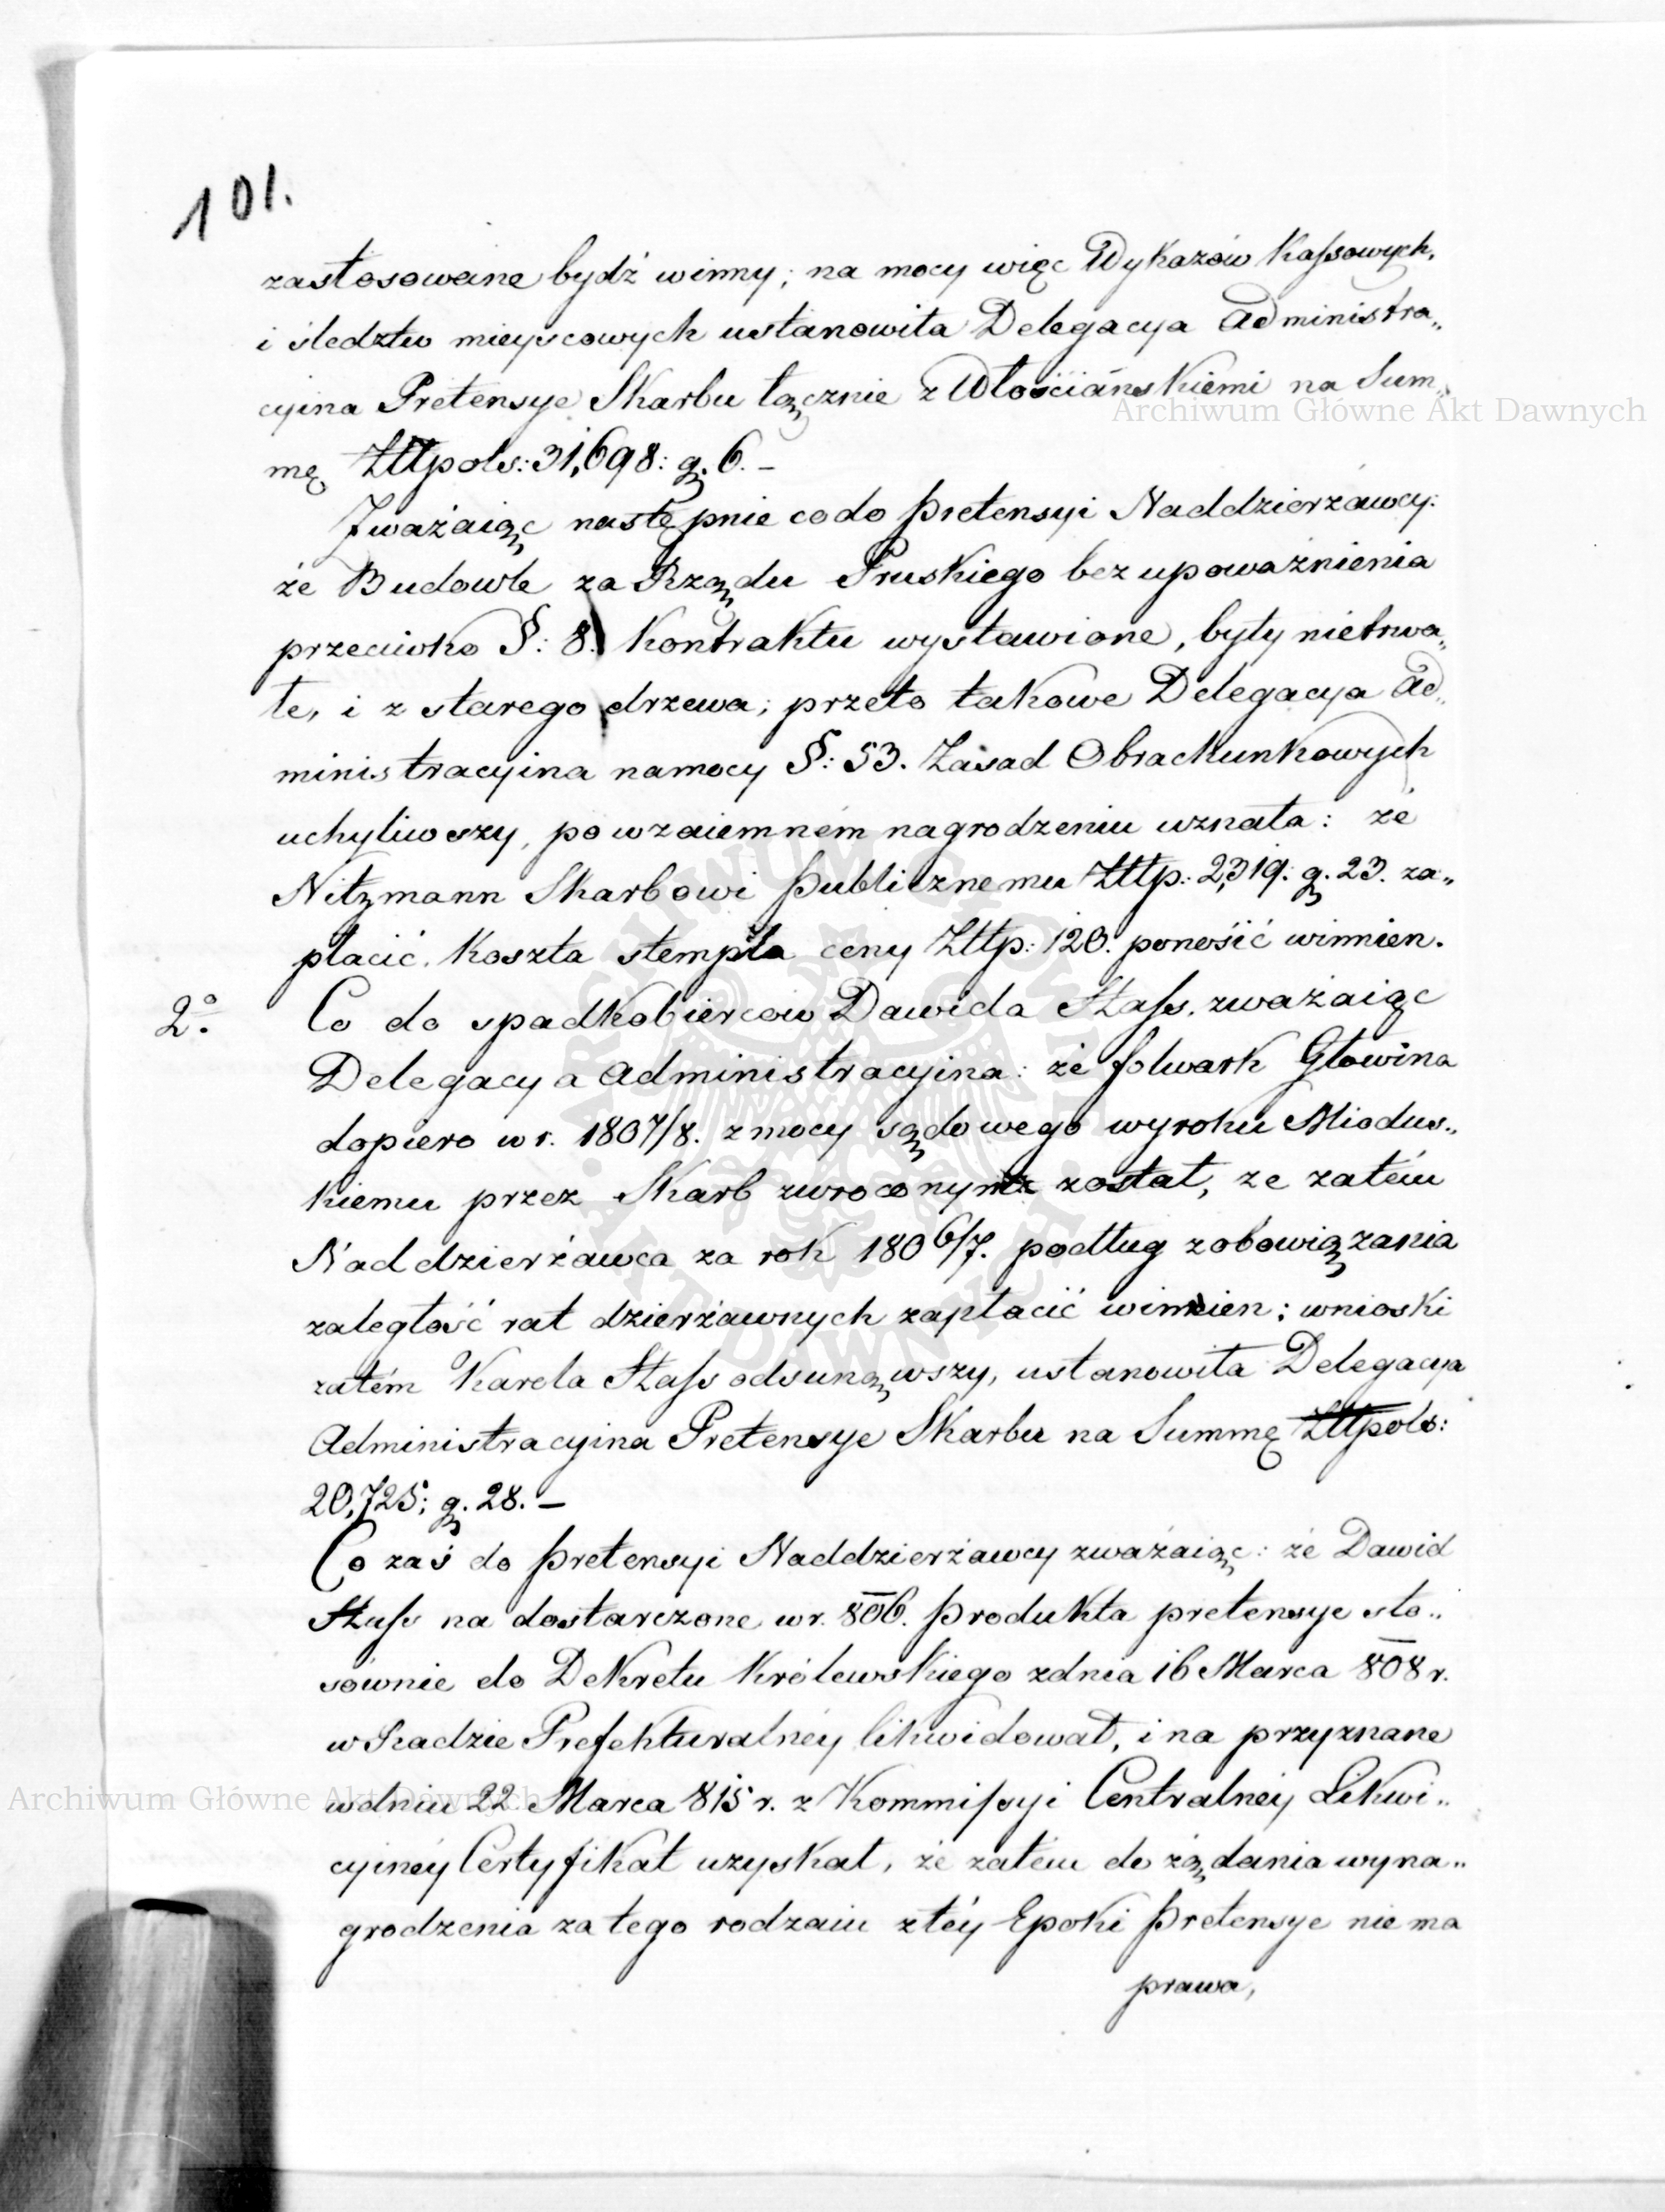 101.
zastosowane bydź winny; na mocy więc Wykazów Kassowych,
i śledztw mieyscowych ustanowiła Delegacya Administra„
cyina Pretensye Skarbu łącznie z Włościańskiemi na Sum„
mę Złtpols: 31,698: g. 6. –
Zważaiąc następnie co do pretensyi Naddzierżawcy:
że Budowle za Rządu Pruskiego bez upoważnienia
przeciwko §: 8. Kontraktu wystawione, były nietrwa„
łe, i z starego drzewa; przeto takowe Delegacya Ad„
ministracyina na mocy §: 53. Zasad Obrachunkowych
uchyliwszy, po wzaiemném nagrodzeniu uznała: że
Nitzmann Skarbowi publicznemu Złtp: 2,319: g. 23. za„
płacić. Koszta stempla ceny Złtp: 120. ponośić winnien.
2º. Co do spadkobierców Dawida Stass, zważaiąc
Delegacya Administracyina: że folwark Głowina
dopiero w r. 1807/8. z mocy sądowego wyroku Miodus„
kiemu przez Skarb zwrocony został, ze zatém
Naddzierżawca za rok 1806/7. podług zobowiązania
zaległość rat dzierżawnych zapłacić winnien; wnioski
zatém Karola Stass odsunąwszy, ustanowiła Delegacya
Administracyina Pretensye Skarbu na Summę Złtpols:
20,725; g. 28. –
Co zaś do pretensyi Naddzierżawcy zważaiąc: że Dawid
Stass na dostarczone w r. 806. produkta pretensye sto„
sównie do Dekretu Królewskiego z dnia 16 Marca 808 r.
w Radzie Prefekturalnéy likwidował, i na przyznane
w dniu 22 Marca 815 r. z Kommissyi Centralnéy Likwi„
cyinéy Certyfikat uzyskał, że zatém do żądania wyna„
grodzenia za tego rodzaiu z téy Epoki pretensye nie ma
prawa,
Archiwum Główne Akt Dawnych
Archiwum Główne Akt Dawnych
ARCHIWUM GŁÓWNE AKT DAWNYCH